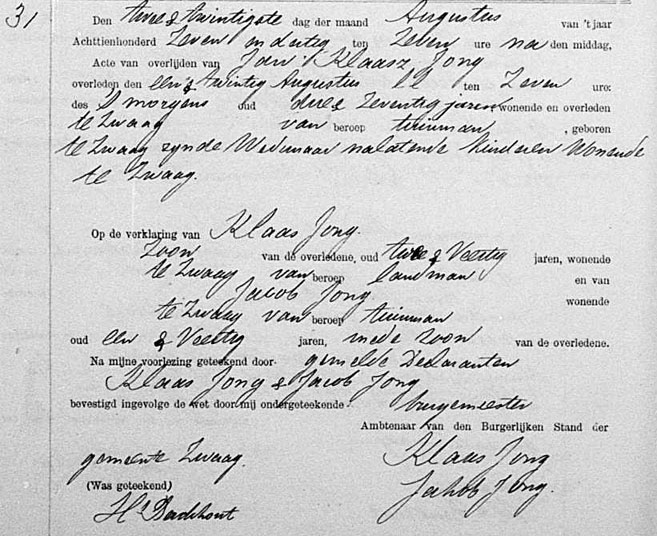 31
Den twee & twintigste dag der maand Augustus van 't jaar
Achttienhonderd Zeven en dertig ten Zeven ure na den middag,
Acte van overlijden van Jan Klaasz Jong
overleden den een & twintig Augustus ll ten Zeven ure:
des S morgens oud drie & Zeventig jaren wonende en overleden
te Zwaag van beroep tuinman, geboren
te Zwaag zynde Weduwnaar nalatende Kinderen Wonende
te Zwaag.
Op de verklaring van Klaas Jong
Zoon van de overledene, oud twee & Veertig jaren, wonende
te Zwaag van beroep landman en van
Jacob Jong wonende
te Zwaag van beroep tuinman
oud een & Veertig jaren, mede zoon van de overledene.
Na mijne voorlezing geteekend door gemelde Declaranten
Klaas Jong & Jacob Jong
bevestigd ingevolge de wet door mij ondergeteekende burgemeester
Ambtenaar van den Burgerlijken Stand der
gemeente Zwaag.
Klaas Jong
(Was geteekend)
Jakob Jong.